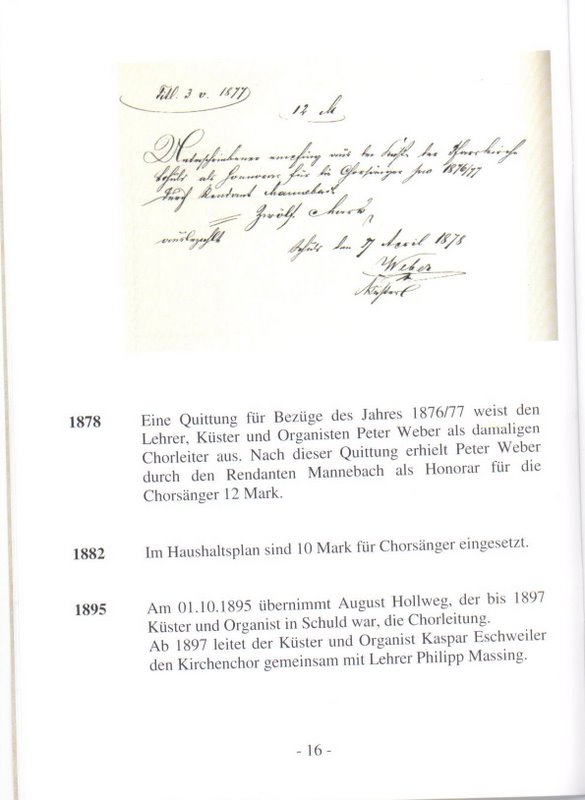 Titl. 3 v. 1877
12 M
Unterschriebener empfing aus der Kasse der Pfarrkirche
Schuld als Honorar für die Chorsänger pro 1876/77
durch Rendant Mannebach
Zwölf Mark
ausbezahlt
Schuld den 7 April 1878
Weber
Küster
1878 Eine Quittung für Bezüge des Jahres 1876/77 weist den
Lehrer, Küster und Organisten Peter Weber als damaligen
Chorleiter aus. Nach dieser Quittung erhielt Peter Weber
durch den Rendanten Mannebach als Honorar für die
Chorsänger 12 Mark.
1882 Im Haushaltsplan sind 10 Mark für Chorsänger eingesetzt.
1895 Am 01.10.1895 übernimmt August Hollweg, der bis 1897
Küster und Organist in Schuld war, die Chorleitung.
Ab 1897 leitet der Küster und Organist Kaspar Eschweiler
den Kirchenchor gemeinsam mit Lehrer Philipp Massing.
- 16 -